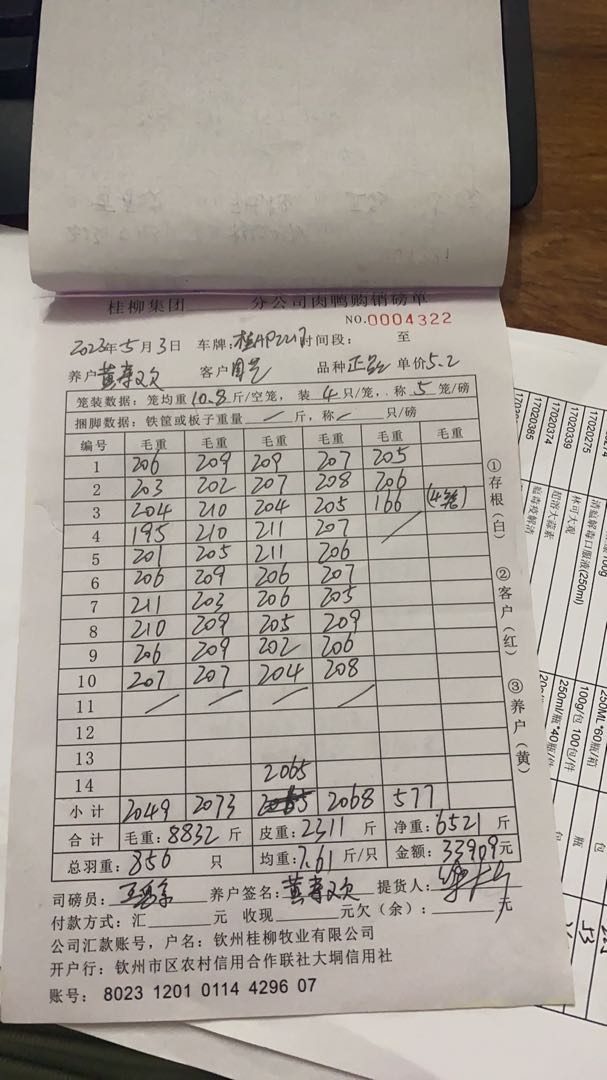 桂柳集团 分公司肉鸭购销磅单
NO.0004322
2023年5月3日 车牌:桂AP2217时间段: 至
养户黄 客户 品种正 单价5.2
笼装数据:笼均重10.8斤/空笼,装4只/笼,称5笼/磅
捆脚数据:铁筐或板子重量/斤,称/只/磅
编号 毛重 毛重 毛重 毛重 毛重 毛重
1 206 209 209 207 205
2 203 202 207 208 206
3 204 210 204 205 166 (4笼)
4 195 210 211 207 /
5 201 205 211 206
6 206 209 206 207
7 211 203 206 205
8 210 209 205 209
9 206 209 202 206
10 207 207 204 208
11 / / / /
12
13
14 2065
小计 2049 2073 2068 577
合计 毛重:8832斤 皮重:2311斤 净重:6521斤
总羽重:856只 均重:7.61斤/只 金额:33909元
司磅员: 养户签名:黄 提货人:
付款方式:汇 元 收现 元欠(余): 元
公司汇款账号,户名:钦州桂柳牧业有限公司
开户行:钦州市区农村信用合作联社大垌信用社
账号:8023 1201 0114 4296 07
①存根(白)
②客户(红)
③养户(黄)
17020385
17020374
17020339
17020275
瘟毒疫解清
超浓大蒜素
林可大观
清瘟解毒口服液(250ml)
250ml/瓶*40瓶/件
100g/包 100包/件
250ML*60瓶/箱
包
瓶
包
53